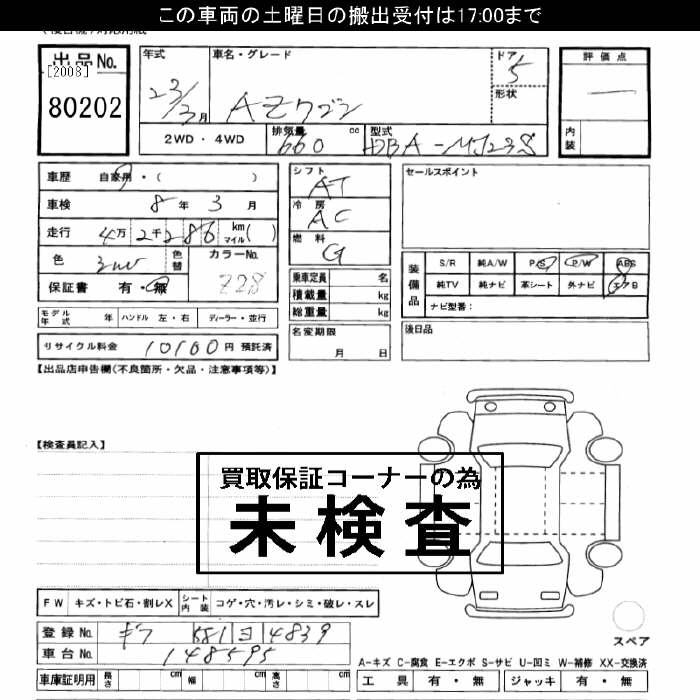 この車両の土曜日の搬出受付は17:00まで
出品No.
[2008]
80202
年式
23/3月
車名・グレード
AZワゴン
ドア
5
形状
評価点
内装
2WD・4WD
排気量
660 cc
型式
DBA-MJ23S
車歴 自家用・( )
車検 8年 3月
走行 4万2千286 km マイル( )
色
色替
カラーNo.
Z2S
保証書 有・無
シフト
AT
冷房
AC
燃料
G
セールスポイント
乗車定員 名
積載量 kg
総重量 kg
装備品
S/R 純A/W P/S P/W ABS
純TV 純ナビ 革シート 外ナビ エアB
ナビ型番:
モデル年式 年 ハンドル 左・右 ディーラー・並行
名変期限
月 日
後日品
リサイクル料金 10100円 預託済
【出品店申告欄(不良箇所・欠品・注意事項等)】
【検査員記入】
買取保証コーナーの為
未検査
FW キズ・トビ石・割レX シート内装 コゲ・穴・汚レ・シミ・破レ・スレ
登録No. ギフ 581 ヨ 4839
車台No. 148595
スペア
A-キズ C-腐食 E-エクボ S-サビ U-凹ミ W-補修 XX-交換済
車庫証明用 長さ cm 幅 cm 高さ cm
工具 有・無 ジャッキ 有・無